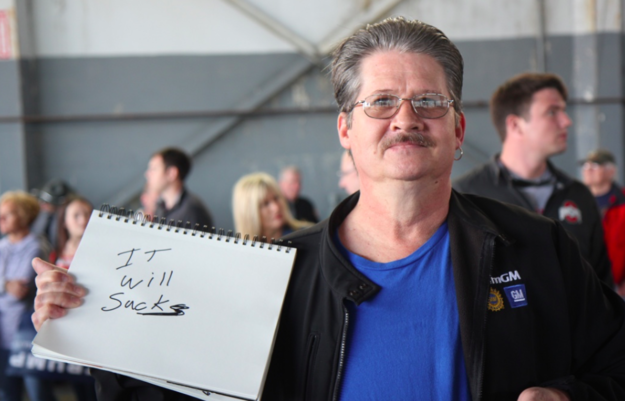 IT
will
Suck
mGM
GM